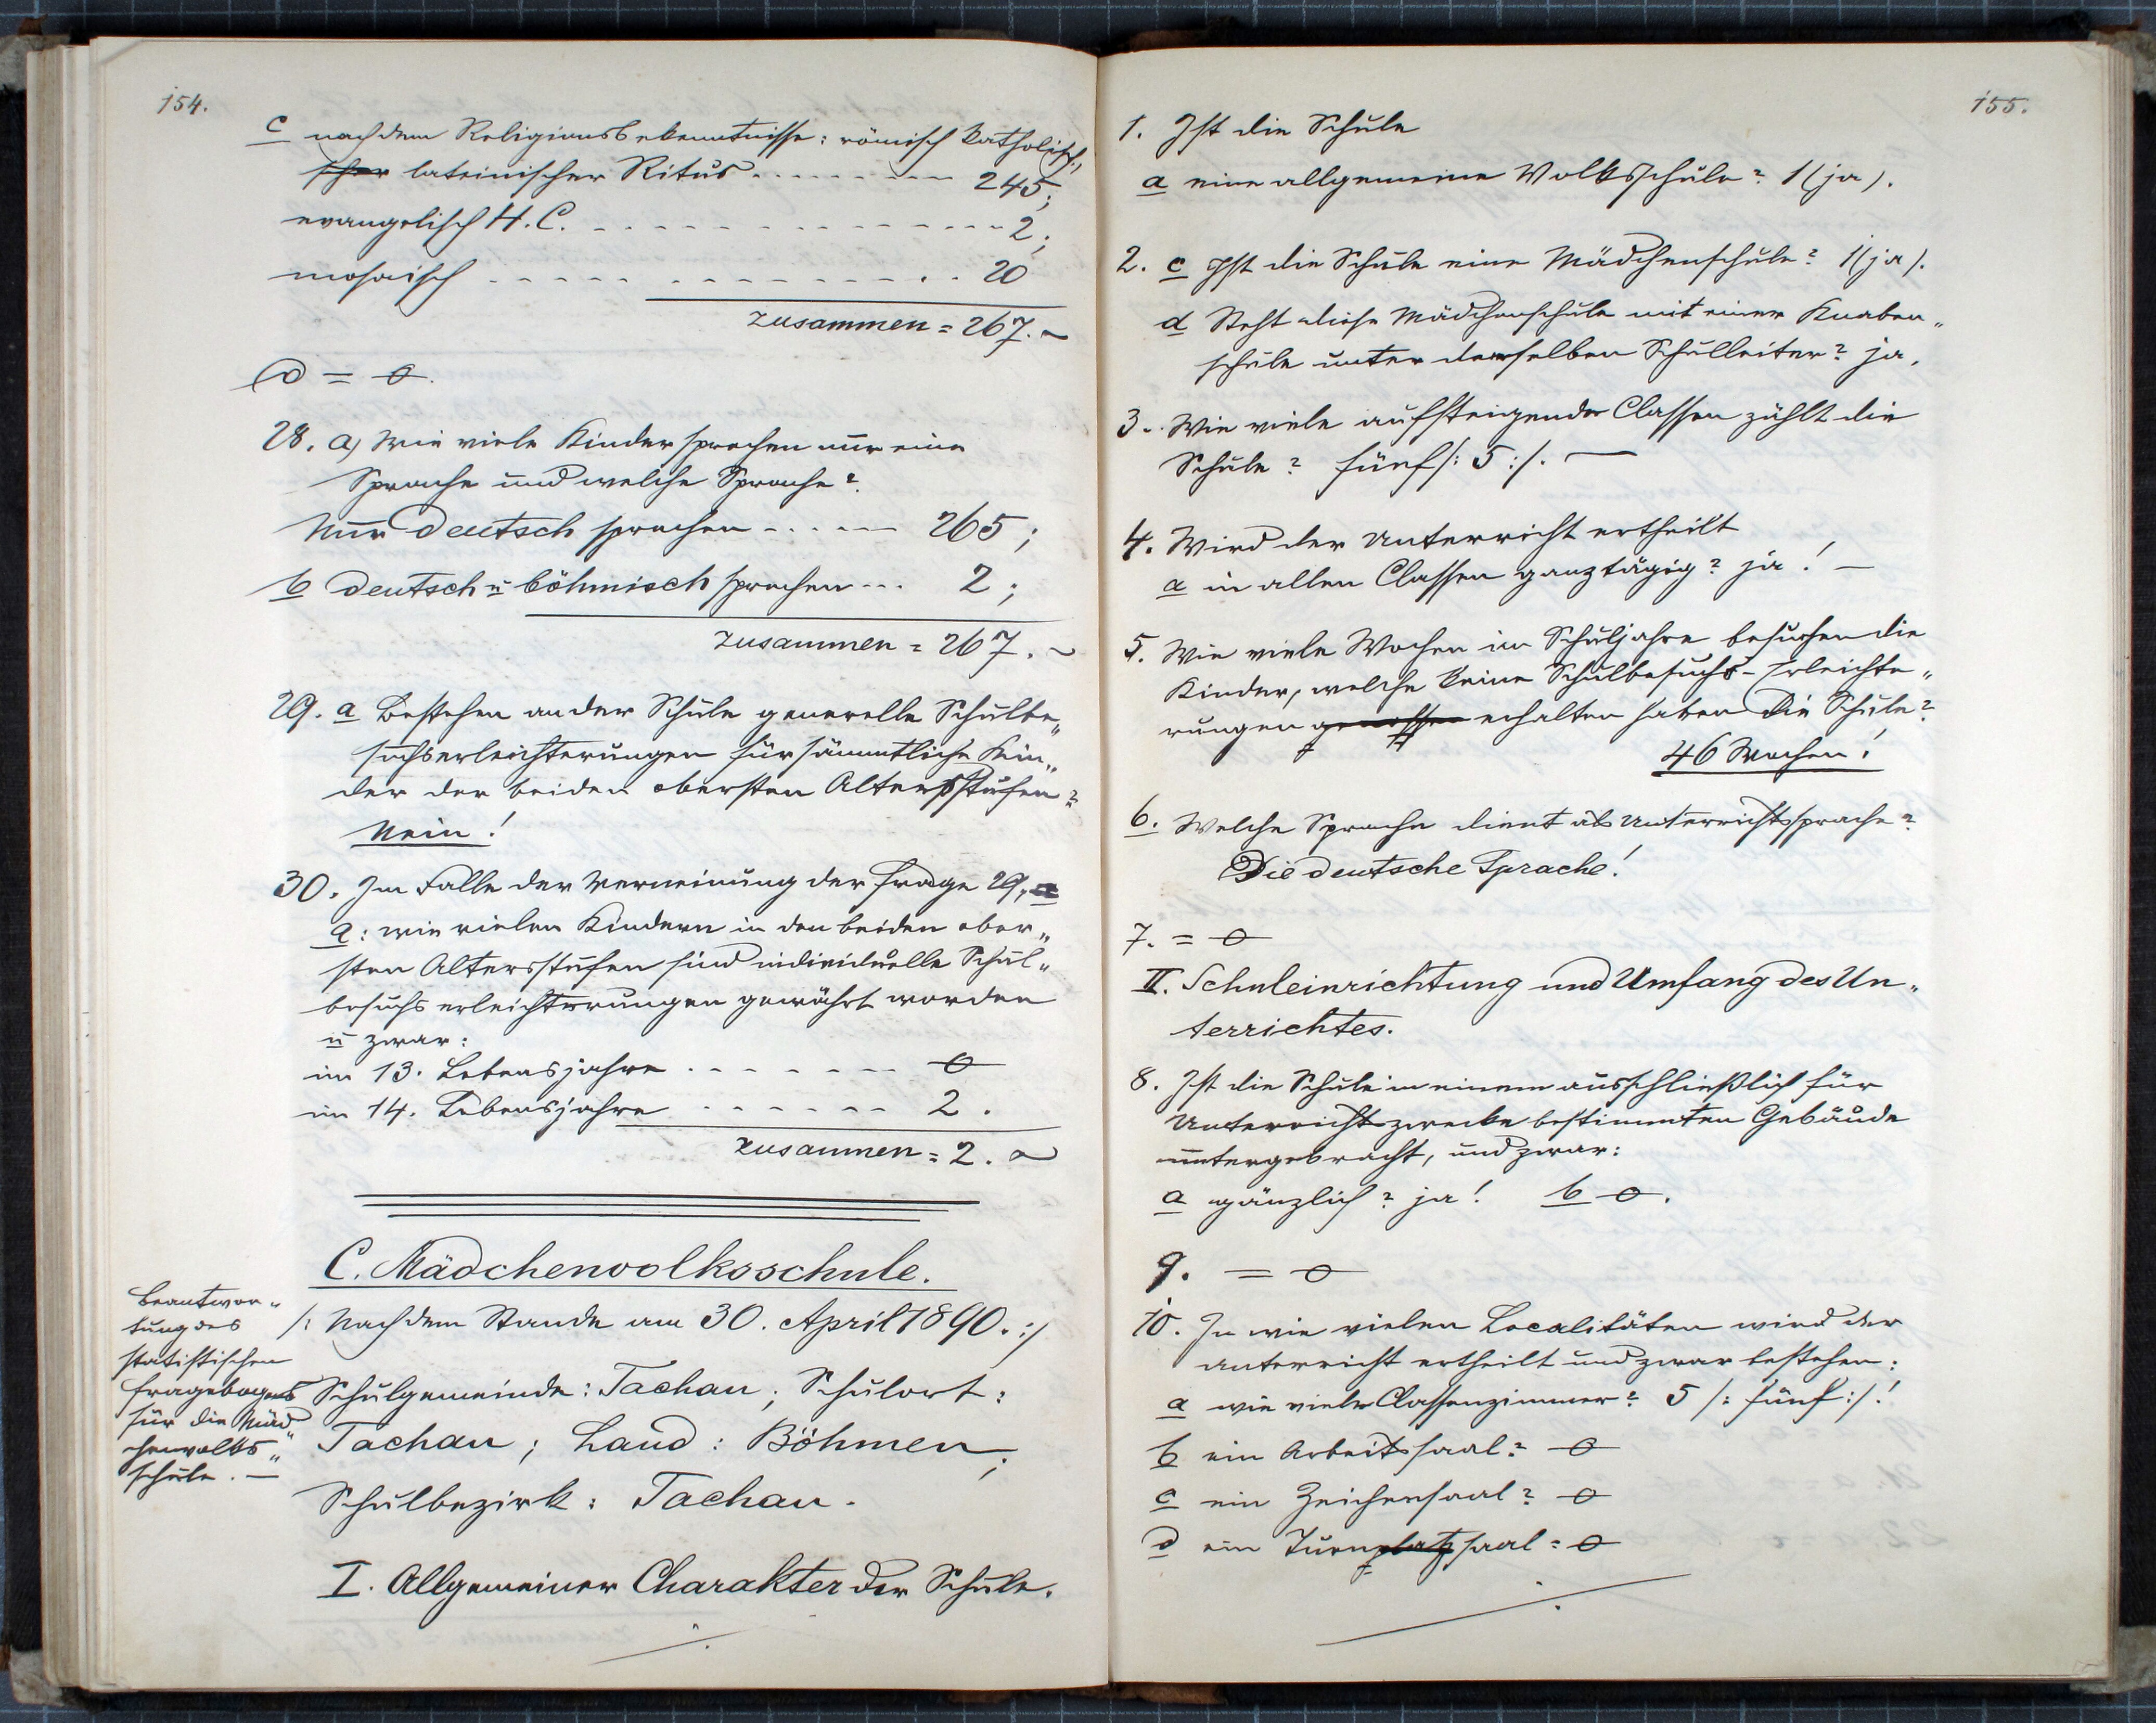 154.
c nach dem Religionsbekenntnisse: römisch katholisch,
scher lateinischer Ritus 245;
evangelisch H. C. 2;
mosaisch 20
zusammen = 267.
d = 0.
28. a) Wie viele Kinder sprechen nur eine
Sprache und welche Sprache?
Nur deutsch sprechen 265;
b deutsch u böhmisch sprechen 2;
zusammen = 267.
29. a Bestehen an der Schule generelle Schulbe„
suchserleichterungen für sämmtliche Kin„
der der beiden obersten Altersstufen?
Nein!
30. Im Falle der Verneinung der Frage 29, a
a: wie vielen Kindern in den beiden ober„
sten Altersstufen sind individuelle Schul„
besuchserleichterungen gewährt worden
u zwar:
im 13. Lebensjahre 0
im 14. Lebensjahre 2.
zusammen = 2.
C. Mädchenvolksschule.
Beantwor„
tung des
statistischen
Fragebogens
für die Mäd„
chenvolks„
schule. —
/: Nach dem Stande am 30. April 1890. :/
Schulgemeinde: Tachau; Schulort:
Tachau; Land: Böhmen;
Schulbezirk: Tachau.
I. Allgemeiner Charakter der Schule.
155.
1. Ist die Schule
a eine allgemeine Volksschule? 1 (ja).
2. c Ist die Schule eine Mädchenschule? 1 (ja).
d Steht diese Mädchenschule mit einer Knaben„
schule unter demselben Schulleiter? ja.
3. Wie viele aufsteigende Classen zählt die
Schule? fünf /: 5 :/. —
4. Wird der Unterricht ertheilt
a in allen Classen ganztägig? ja! —
5. Wie viele Wochen im Schuljahre besuchen die
Kinder, welche keine Schulbesuchs-Erleichte„
rungen genossen erhalten haben die Schule?
46 Wochen!
6. Welche Sprache dient als Unterrichtssprache?
Die deutsche Sprache!
7. = 0
II. Schuleinrichtung und Umfang des Un„
terrichtes.
8. Ist die Schule in einem ausschließlich für
Unterrichtszwecke bestimmten Gebäude
untergebracht, und zwar:
a gänzlich? ja! b 0.
9. = 0
10. In wie vielen Localitäten wird der
Unterricht ertheilt und zwar bestehen:
a wie viele Classenzimmer? 5 /: fünf :/!
b ein Arbeitssaal? 0
c ein Zeichensaal? 0
d ein Turnplatzsaal = 0